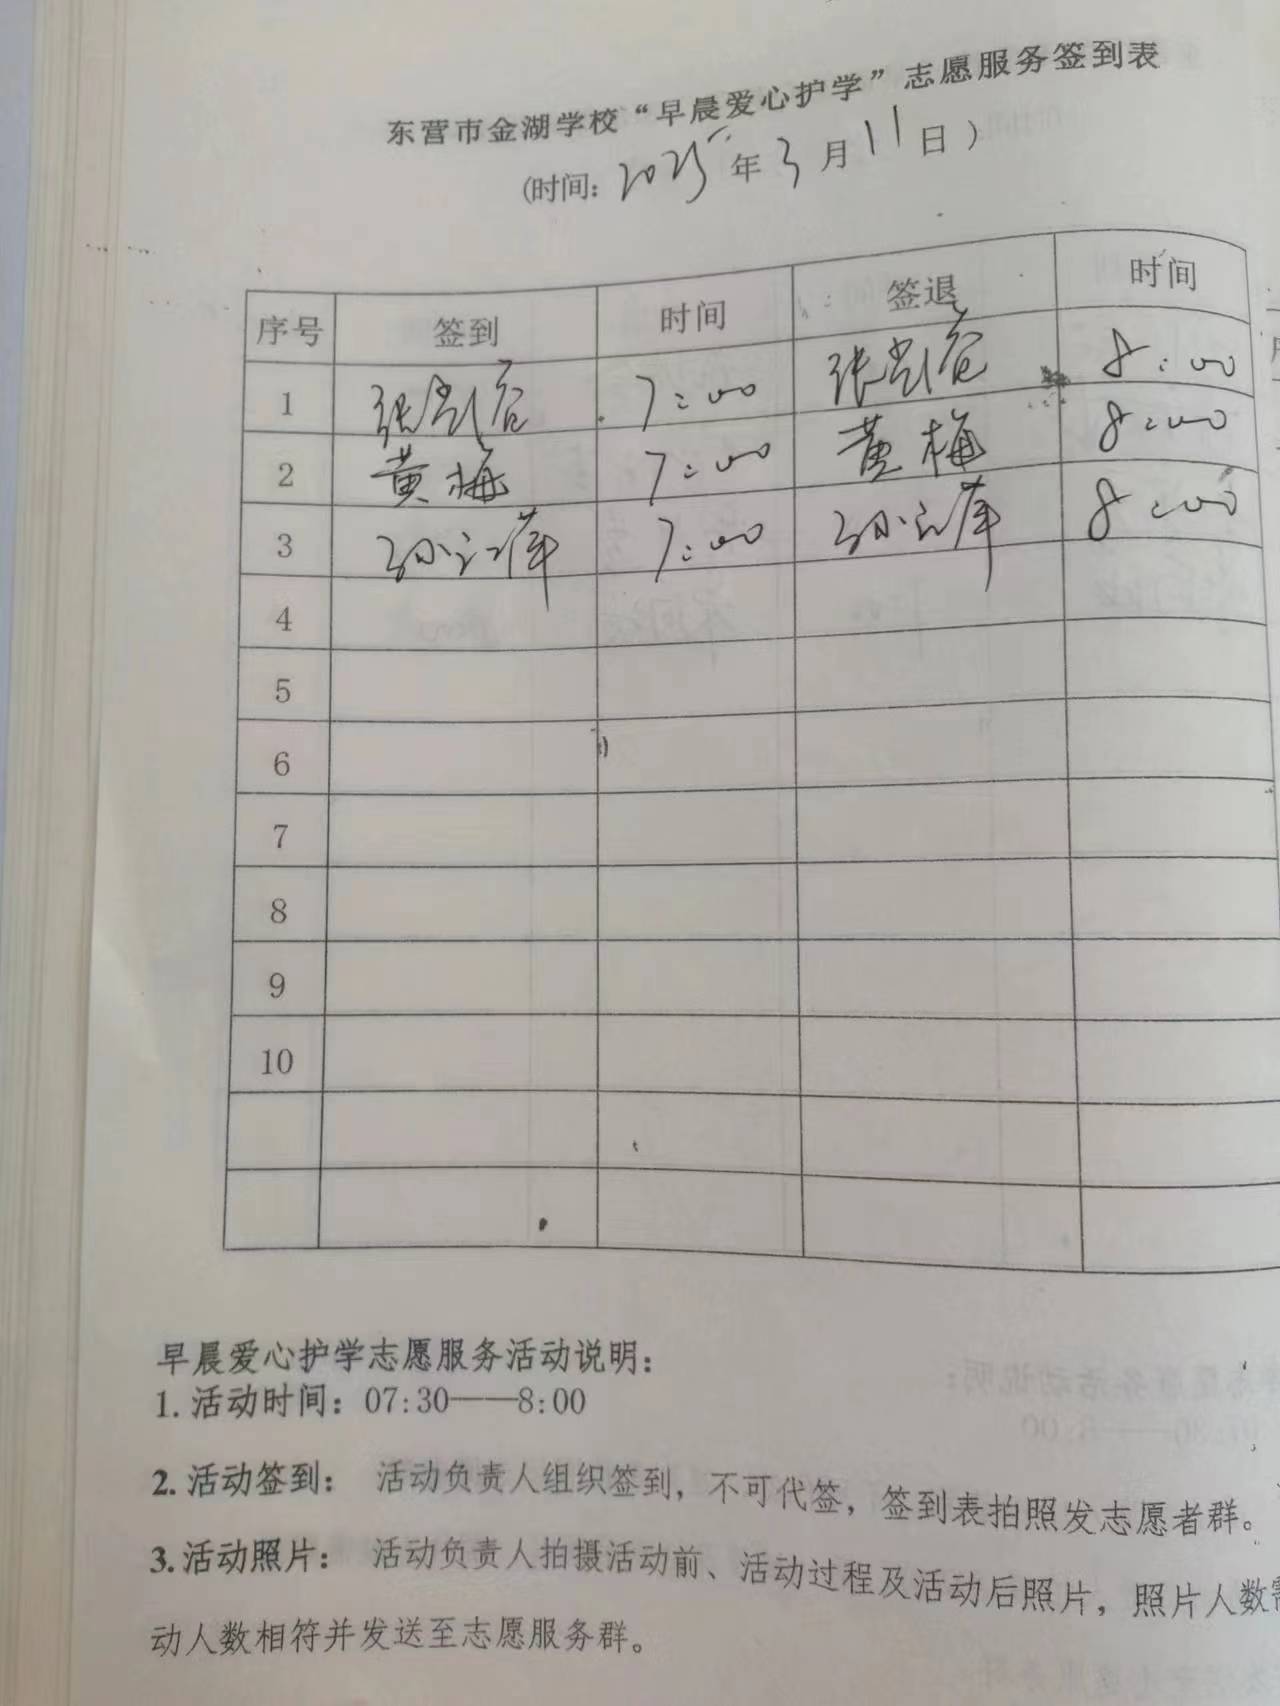 东营市金湖学校“早晨爱心护学”志愿服务签到表
(时间: 2025年3月11日)
序号 签到 时间 签退 时间
1 张 7:00 张 8:00
2 黄梅 7:00 黄梅 8:00
3 孙 7:00 孙 8:00
4
5
6
7
8
9
10
早晨爱心护学志愿服务活动说明:
1.活动时间: 07:30——8:00
2.活动签到: 活动负责人组织签到, 不可代签, 签到表拍照发志愿者群。
3.活动照片: 活动负责人拍摄活动前、活动过程及活动后照片, 照片人数需
动人数相符并发送至志愿服务群。